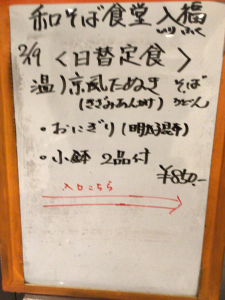 和そば食堂 入福
2/9 〈日替定食〉
温)京風たぬき そば
(きざみあんかけ) うどん
・おにぎり(明太昆布)
・小鉢 2品付
¥850.-
入口こちら